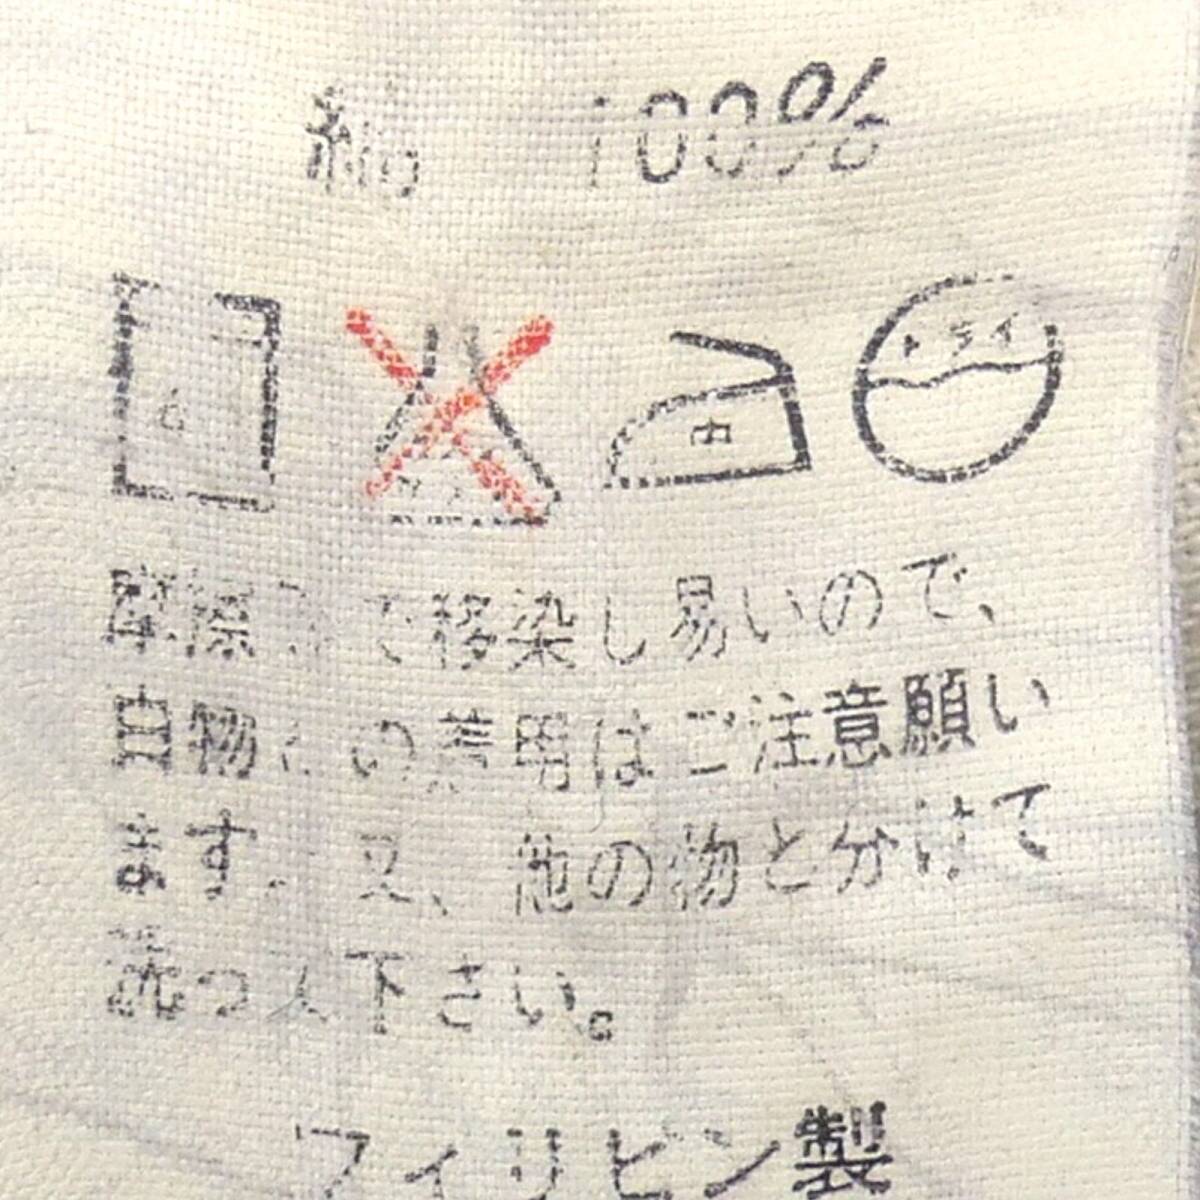 綿 100%
中
ドライ
摩擦等で移染し易いので、
白物との着用はご注意願い
ます。又、他の物と分けて
洗って下さい。
フィリピン製